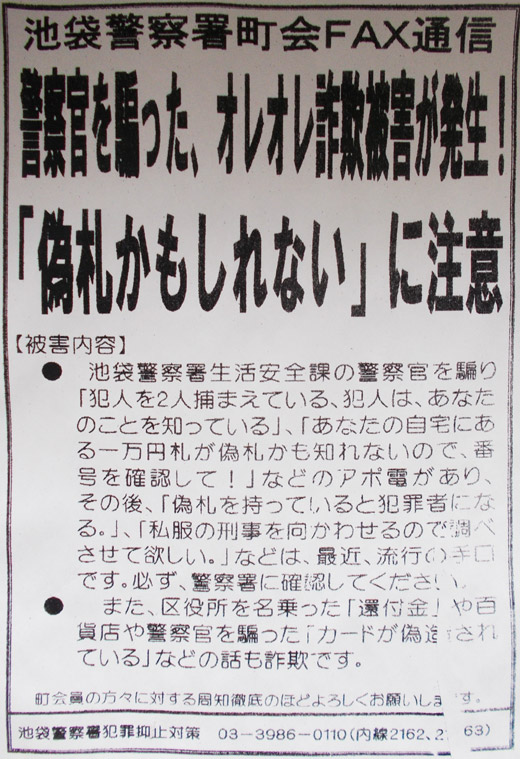 池袋警察署町会FAX通信
警察官を騙った、オレオレ詐欺被害が発生！
「偽札かもしれない」に注意
【被害内容】
● 池袋警察署生活安全課の警察官を騙り
「犯人を2人捕まえている、犯人は、あなた
のことを知っている」、「あなたの自宅にあ
る一万円札が偽札かも知れないので、番
号を確認して！」などのアポ電があり、
その後、「偽札を持っていると犯罪者にな
る。」、「私服の刑事を向かわせるので調べ
させて欲しい。」などは、最近、流行の手口
です。必ず、警察署に確認してください。
● また、区役所を名乗った「還付金」や百
貨店や警察官を騙った「カードが偽造され
ている」などの話も詐欺です。
町会員の方々に対する周知徹底のほどよろしくお願いします。
池袋警察署犯罪抑止対策 03－3986－0110(内線2162、2 63)